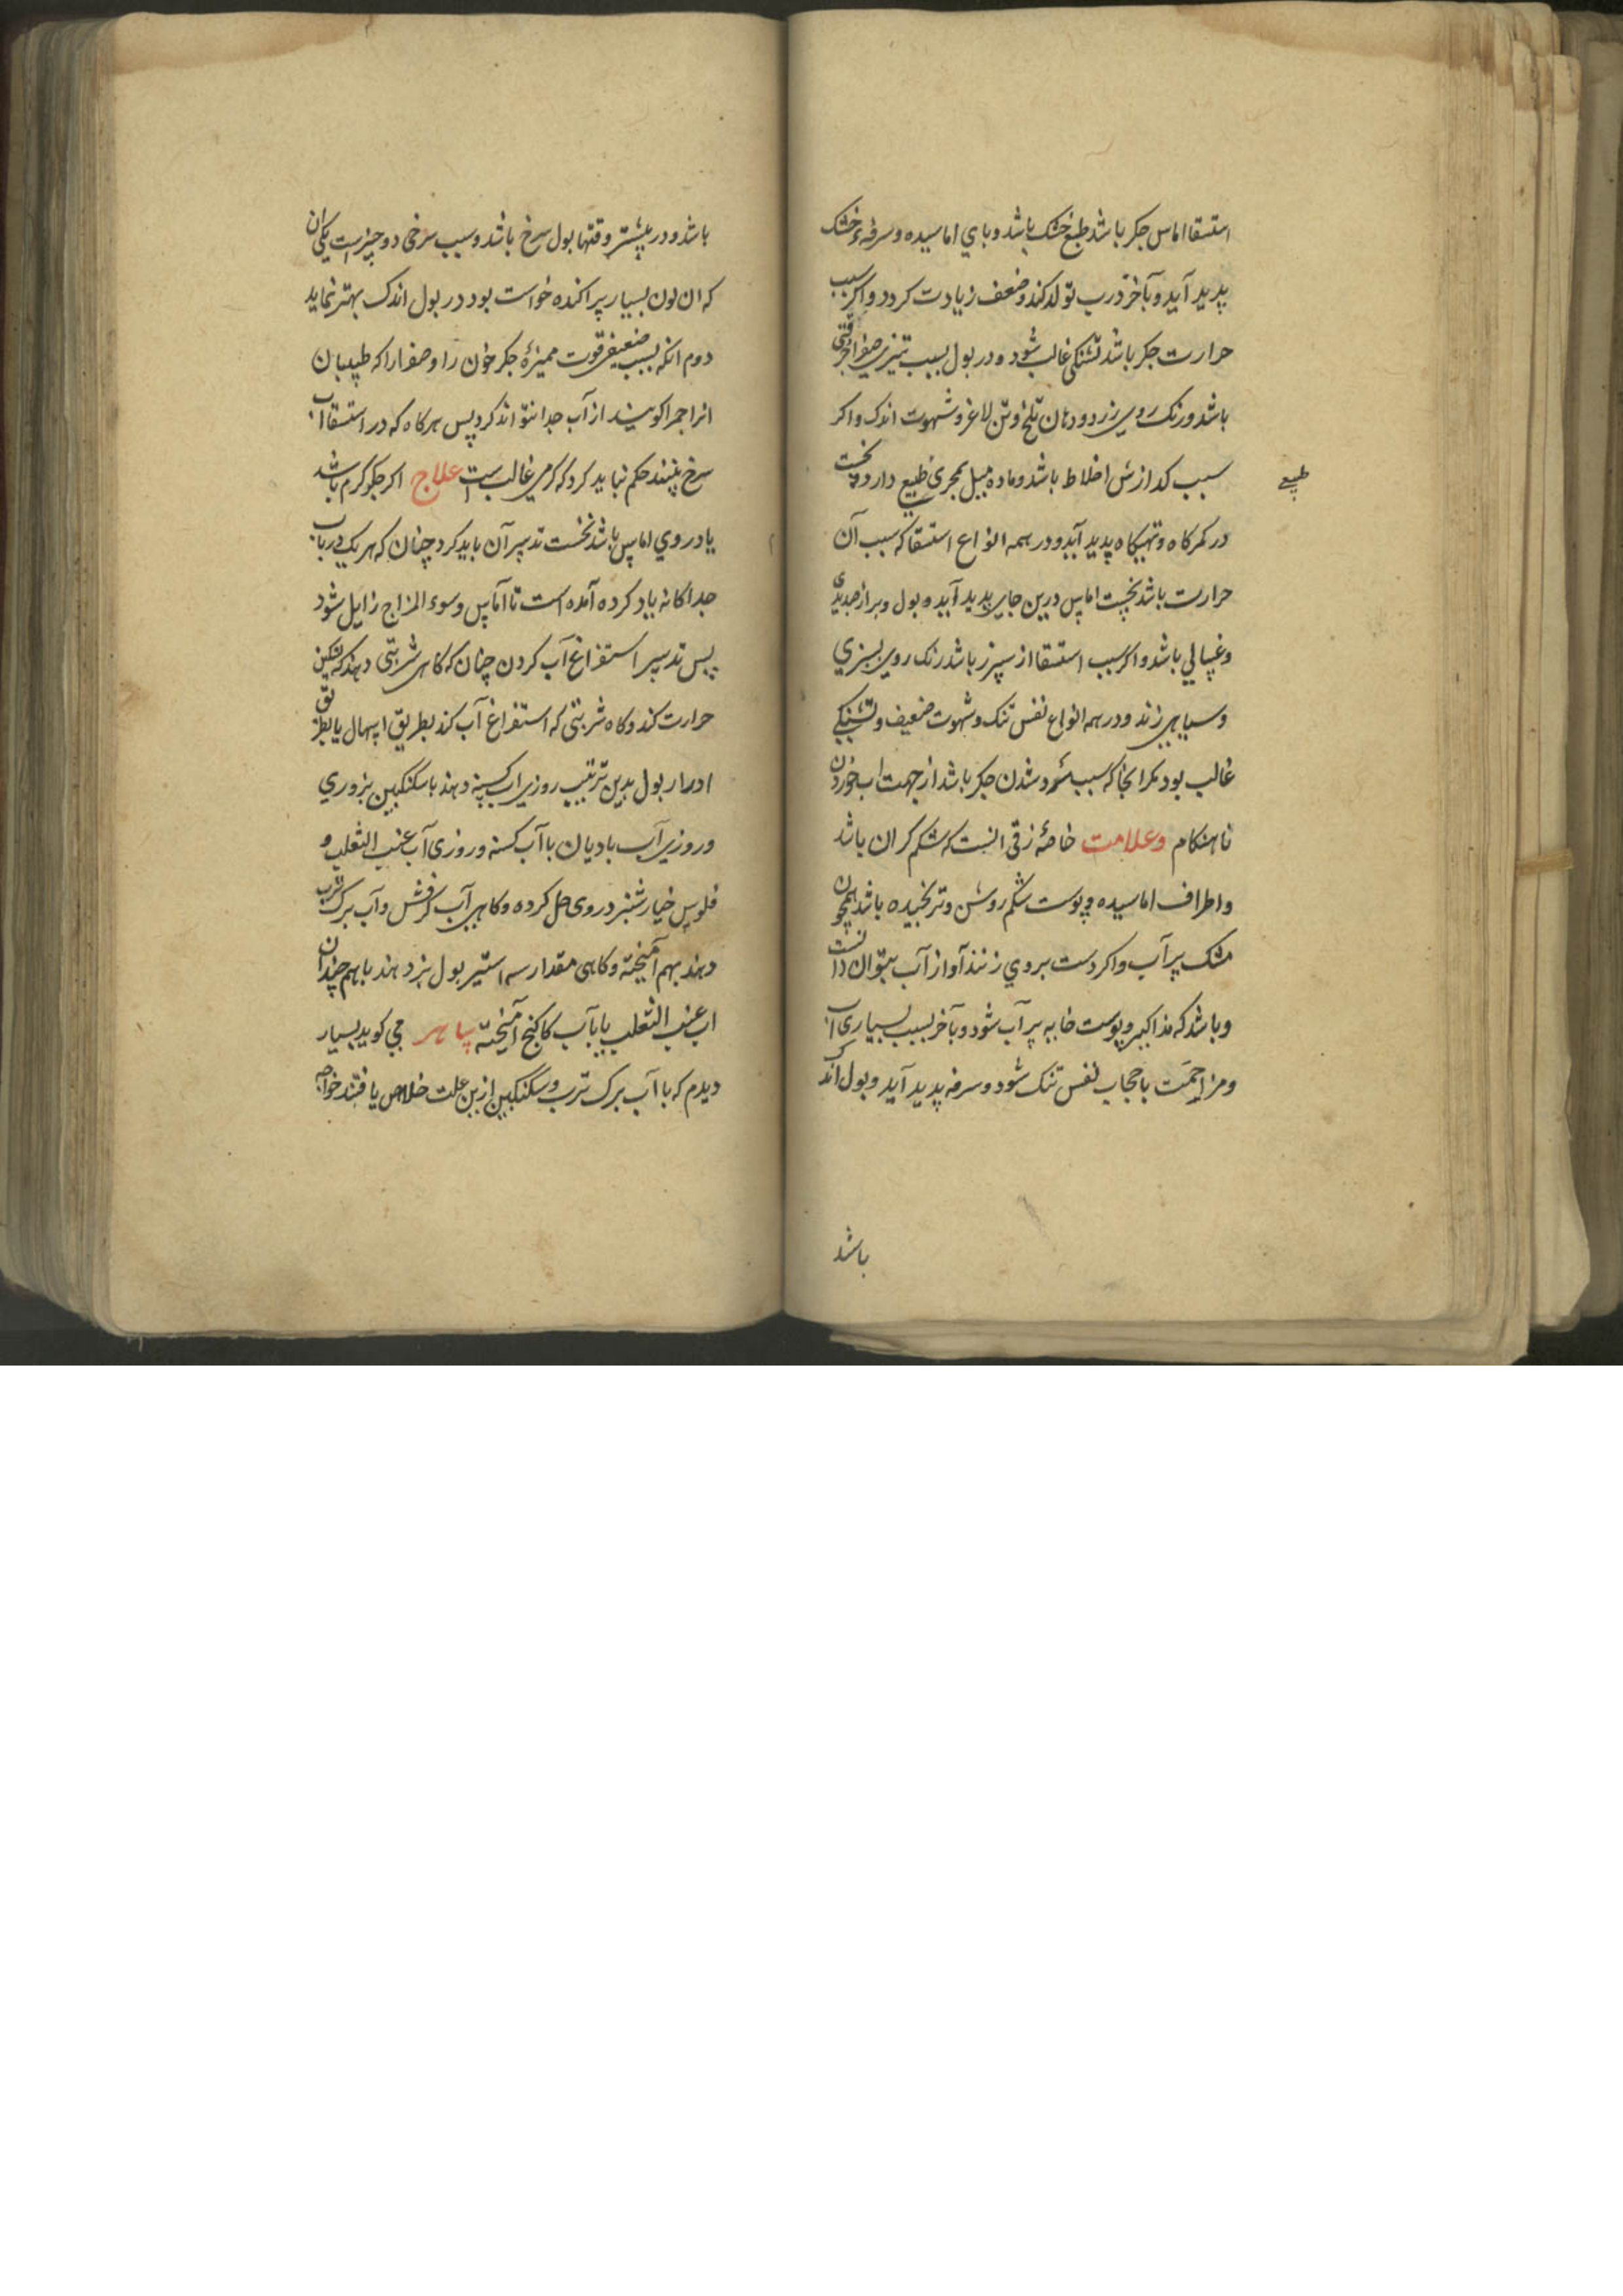 استسقا اماس جکر باشد طبع خشک باشد و پای اماسیده و سرفهٔ خشک
پدید آید و بآخر ذرب تولد کند و ضعف زیادت کردد و اکر سبب
حرارت جکر باشد تشنکی غالب شود و در بول بسبب تیزی صفرا حرقتی
باشد و رنک روی زرد و دهان تلخ و تن لاغر و شهوت اندک و اکر
سبب کدازش اخلاط باشد و ماده میل بمجری طبیع دارد نخست
طبیعی
در کمرکاه و تهیکاه پدید آید و در همه انواع استسقا که سبب آن
حرارت باشد نخست اماس درین جای پدید آید و بول و براز صدیدی
و غسالی باشد و اکر سبب استسقا از سپرز باشد رنک روی بسبزی
و سیاهی زند و در همه انواع نفس تنک و شهوت ضعیف و تشنکی
غالب بود مکر انجا که سبب سرد شدن جکر باشد از جهت اب خوردن
ناهنکام وعلامت خاصهٔ زقی انست که شکم کران باشد
و اطراف اماسیده و پوست شکم روشن و ترنجیده باشد همچون
مشک پر آب و اکر دست بروی زنند آواز آب بتوان دانست
و باشد که مذاکیر و پوست خایه پر آب شود و بآخر بسبب بسیاری اب
و مزاحمت با حجاب نفس تنک شود و سرفه پدید آید و بول اندک
باشد
باشد و در بیشتر وقتها بول سرخ باشد و سبب سرخی دو چیزاست یکی ان
که ان لون بسیار پراکنده خواست بود در بول اندک بهتر نماید
دوم انکه بسبب ضعیفی قوت ممیزهٔ جکر خون را و صفرا را که طبیبان
انرا حمرا کویند از آب جدا نتواند کرد پس هرکاه که در استسقا اب
سرخ بینند حکم نباید کرد که کرمی غالب است علاج اکر جکر کرم باشد
یا در وی اماس باشد نخست تدبیر آن باید کرد چنان که هر یک در باب
جداکانه یاد کرده آمده است تا آماس و سوء المزاج زایل شود
پس تدبیر استفراغ آب کردن چنان که کاهی شربتی دهند که تسکین
حرارت کند و کاه شربتی که استفراغ آب کند بطریق اسهال یا بطریق
ادرار بول بدین ترتیب روزی اب کسنه دهند با سکنکبین بزوری
و روزی آب بادیان با آب کسنه و روزی آب عنب الثعلب و
فلوس خیارشنبر در وی حل کرده و کاهی آب کرفش و آب برک ترب
دهند بهم آمیخته و کاهی مقدار سه استیر بول بز دهند با هم چندان
اب عنب الثعلب یا بآب کاکنج آمیخته می کوید بسیار
دیدم که با آب برک ترب و سکنکبین ازین علت خلاص یافتند خواجه